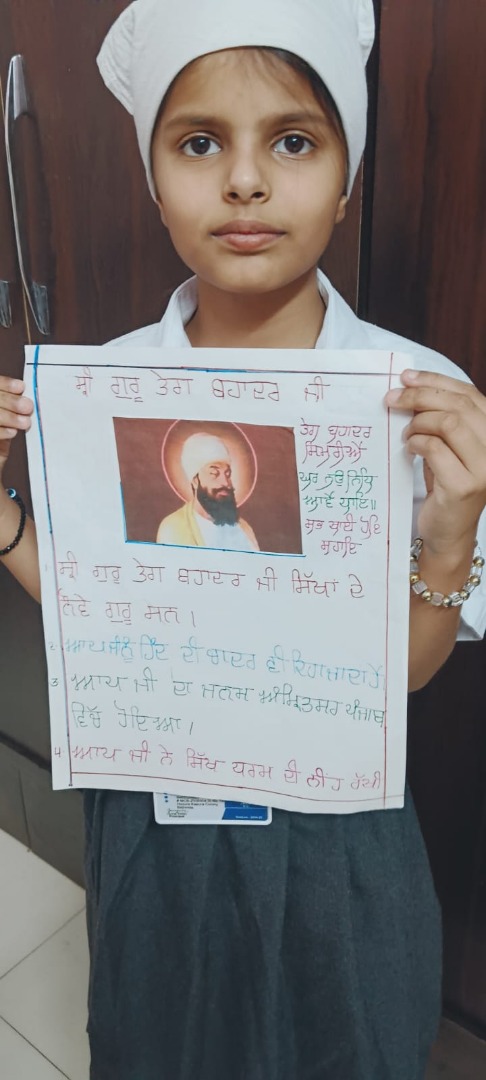 ਸ੍ਰੀ ਗੁਰੂ ਤੇਗ ਬਹਾਦਰ ਜੀ
ਤੇਗ ਬਹਾਦਰ
ਸਿਮਰੀਐ
ਘਰ ਨਉ ਨਿਧਿ
ਆਵੈ ਧਾਇ॥
ਸਭ ਥਾਈ ਹੋਇ
ਸਹਾਇ
1 ਸ੍ਰੀ ਗੁਰੂ ਤੇਗ ਬਹਾਦਰ ਜੀ ਸਿੱਖਾਂ ਦੇ
ਨੌਵੇਂ ਗੁਰੂ ਸਨ।
2 ਆਪ ਜੀ ਨੂੰ ਹਿੰਦ ਦੀ ਚਾਦਰ ਵੀ ਕਿਹਾ ਜਾਂਦਾ ਹੈ
3 ਆਪ ਜੀ ਦਾ ਜਨਮ ਅੰਮ੍ਰਿਤਸਰ ਪੰਜਾਬ
ਵਿੱਚ ਹੋਇਆ।
4 ਆਪ ਜੀ ਨੇ ਸਿੱਖ ਧਰਮ ਦੀ ਨੀਂਹ ਰੱਖੀ